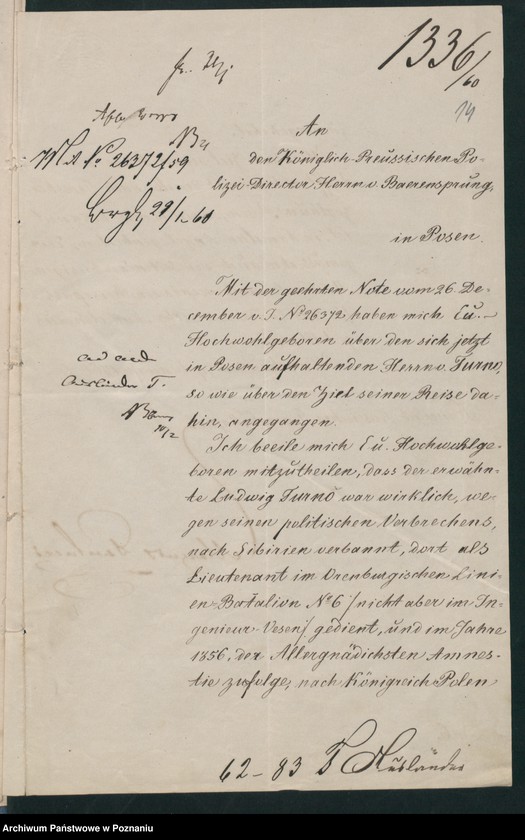 1336/60
14
An
den Königlich-Preussischen Po-
lizei-Director, Herrn v. Baerensprung,
in Posen.
№ 26372/59
29/1 60
Mit der geehrten Note vom 26 De-
cember v. J. № 26372 haben mich Eu.
Hochwohlgeboren über den sich jetzt
in Posen aufhaltenden Herrn v. Turno,
so wie über den Ziel seiner Reise da-
hin, angegangen.
ad acta
Ausländer T.
10/2
Ich beeile mich Eu. Hochwohlge-
boren mitzutheilen, dass der erwähn-
te Ludwig Turno war wirklich, we-
gen seinen politischen Verbrechens,
nach Sibirien verbannt, dort als
Lieutenant im Orenburgischen Lini-
en-Batalion №6 /nicht aber im In-
genieur-Vesen/ gedient, und im Jahre
1856, der Allergnädichsten Amnes-
tie zufolge, nach Königreich Polen
62-83 T Ausländer
Archiwum Państwowe w Poznaniu